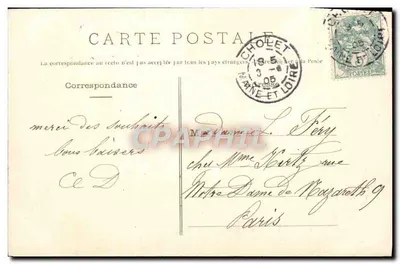 CARTE POSTALE
La correspondance au recto n'est pas acceptée par tous les pays étrangers
Correspondance
CHOLET
19 5
3 -6
05
MAINE ET LOIRE
merci des souhaits
bons baisers
CD
Madame L Féry
chez Mme Hirtz rue
Notre Dame de Nazareth 9
Paris
CARTES POSTALES